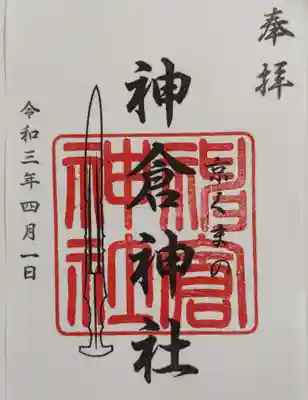 奉拝
京くまの
神倉神社
神倉神社
令和三年四月一日